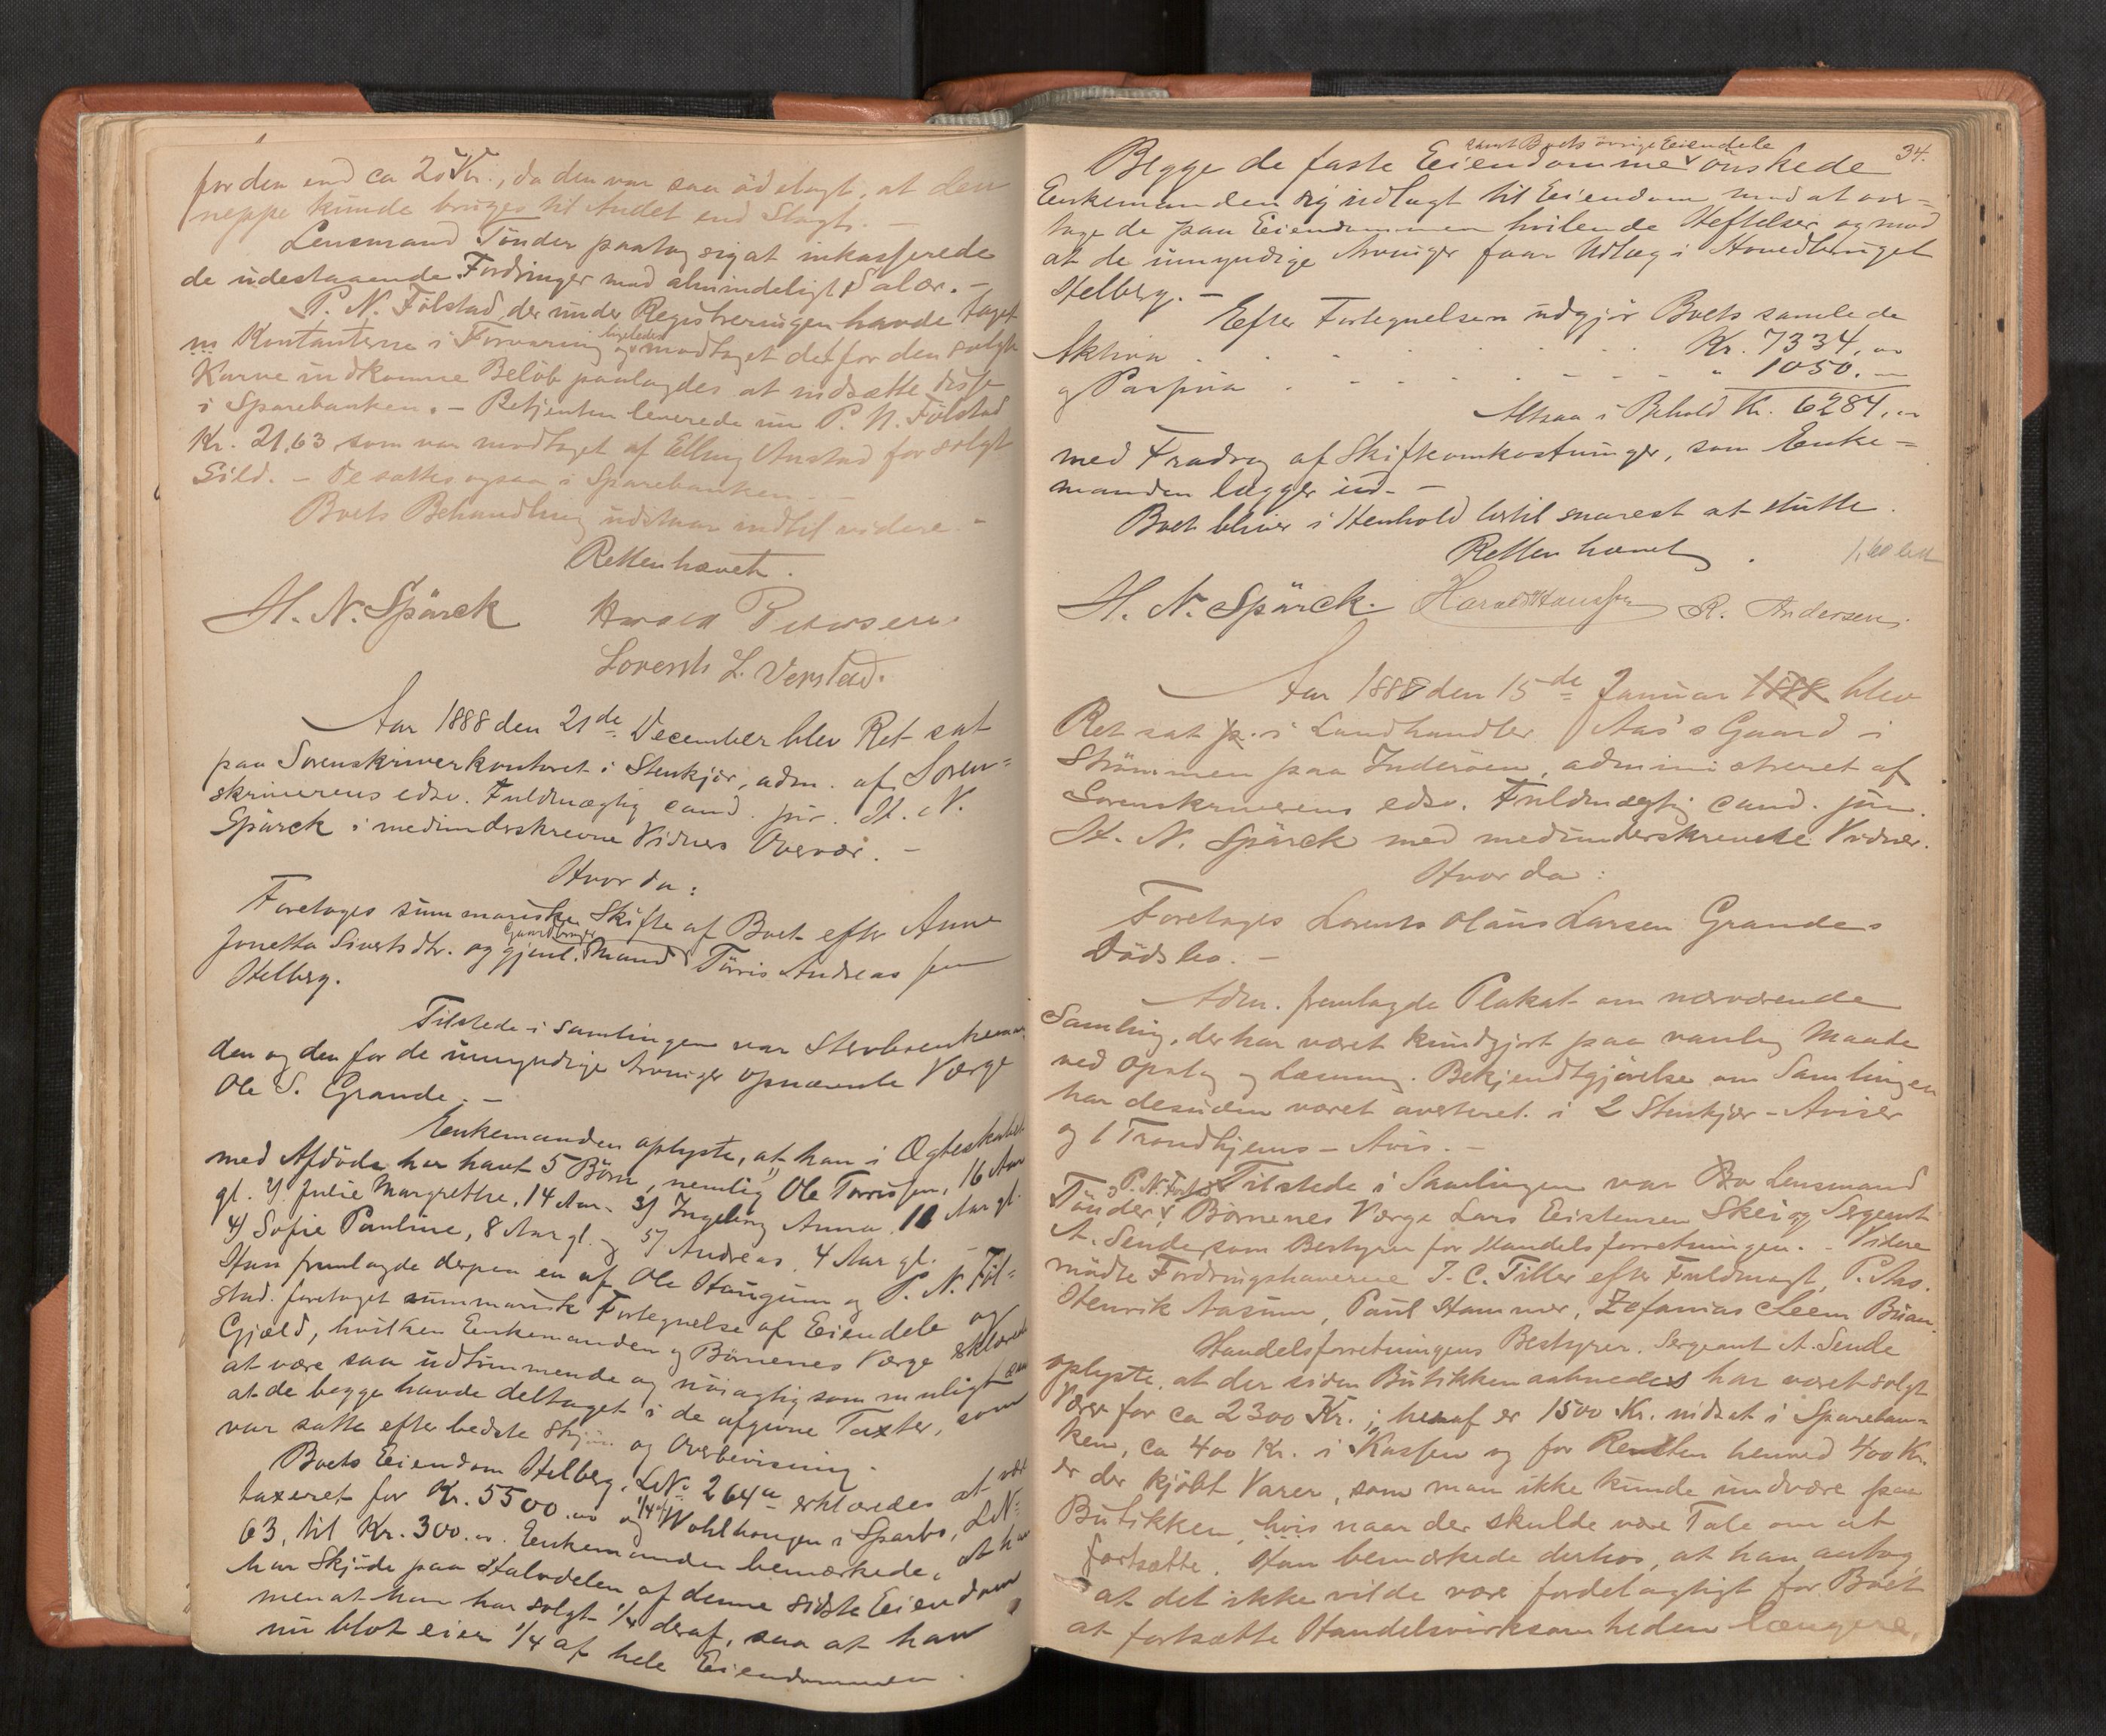 for den end ca 20 Kr., da den var saa ödelagt, at den
neppe kunde bruges til Andet end Slagt. –
Lensmand Tönder paatog sig at inkasserede
de udestaaende Fordringer mod almindeligt Salær. –
P. N. Fölstad, der under Registreringen havde taget
Kontanterne i Forvaring og ligeledes modtaget det for den solgte
indkomne Belöb paalagdes at indsætte disse
i Sparebanken. – Betjenten leverede nu P. N. Fölstad
Kr. 21,63 som var modtaget af Elling Anstad for solgt
Sild. – De sættes ogsaa i Sparebanken. –
Boets Behandling udstaar indtil videre. –
Retten hævet.
H. N. Spärck Harald Petersen.
Lorents L. Verstad.
Aar 1888 den 21de December blev Ret sat
paa Sorenskriverkontoret i Stenkjær, adm. af Soren=
skriverens edsv. Fuldmægtig cand. jur. H. N.
Spärck i medunderskrevne Vidners Overvær. –
Hvor da:
Foretoges summariske Skifte af Boet efter Anne
Jonetta Sivertsdtr. og gjenl. Mand Gaardbruger Törris Andreassen
Helberg.
Tilstede i Samlingen var Sterboenkeman
den og den for de umyndige Arvinger opnævnte Værge
Ole S. Grande. –
Enkemanden oplyste, at han i Ægteskabet
med Afdöde har havt 5 Börn, nemlig 1) Ole Torrissen, 16 Aar
gl. 2) Julie Margrethe, 14 Aar. 3) Ingeborg Anna 11 Aar gl.
4) Sofie Pauline, 8 Aar gl. og 5) Andreas, 4 Aar gl. –
Han fremlagde derpaa en af Ole Haugum og P. N. Föl=
stad foretaget summarisk Fortegnelse af Eiendele og
Gjæld, hvilken Enkemanden og Börnenes Værge erklærede
at være saa udtömmende og nöiagtig som muligt
at de begge havde deltaget i de afgivne Taxter, som
var satte efter bedste Skjön og Overbevisning.
Boets Eiendom Helberg, LNo 264a erklæredes at være
taxeret for Kr. 5500.00 og 1/4 af Wohlhaugen i Sparbo, LN=
63, til Kr. 300.00. Enkemanden bemærkede, at han
har Skjöde paa Halvdelen af denne sidste Eiendom
men at han har solgt 1/4 deraf, saa at han
nu blot eier 1/4 af hele Eiendommen.
34.
Begge de faste Eiendomme samt Boets övrige Eiendele önskede
Enkemanden sig udlagt til Eiendom mod at over=
tage de paa Eiendommen hvilende Heftelser og mod
at de umyndige Arvinger faar Udlæg i Hovedbruget
Helberg. –
Efter Fortegnelsen udgjör Boets samlede
Aktiva . . . . . . Kr. 7334,00
og Passiva . . . . . . " 1050.–
Altsaa i Behold Kr. 6284,00
med Fradrag af Skifteomkostninger, som Enke=
manden lægger ud. –
Boet bliver i Henhold hertil snarest at slutte.
Retten hævet.
H. N. Spärck. Harald Hanssen R. Andersen.
Aar 1888 den 15de Januar 1888 blev
Ret sat p. i Landhandler Aas's Gaard i
Strömmen paa Inderöen, administreret af
Sorenskriverens edsv. Fuldmægtig cand. jur.
H. N. Spärck med medunderskrevne Vidner.
Hvor da:
Foretoges Lorents Olaus Larsen Grandes
Dödsbo. –
Adm. fremlagde Plakat om nærværende
Samling, der har været kundgjort paa vanlig Maade
ved Opslag og Læsning. Bekjendtgjörelse om Samlingen
har desuden været averteret i 2 Stenkjær-Aviser
og 1 Trondhjems-Avis. –
Tilstede i Samlingen var Bo Lensmand
Tönder, P. N. Fölstad, Börnenes Værge Lars Eistensen Skei og Sergeant
A. Sende som Bestyrer for Handelsforretningen. – Videre
mödte Fordringshaverne J. C. Tiller efter Fuldmagt, P. Aas.
Henrik Aasum, Paul Hammer, Zefanias Sleem Buan.
Handelsforretningens Bestyrer, Sergeant A. Sende
oplyste, at der siden Butikken aabnedes har været solgt
Varer for ca 2300 Kr.; heraf er 1500 Kr. indsat i Spareban=
ken, ca 400 Kr. i Kassen og for Resten henved 400 Kr.
er der kjöbt Varer, som man ikke kunde undvære paa
Butikken, hvis naar der skulde være Tale om at
fortsætte. Han bemærkede derhos, at han antog,
at det ikke vilde være fordelagtigt for Boet
at fortsætte Handelsvirksomheden længere,